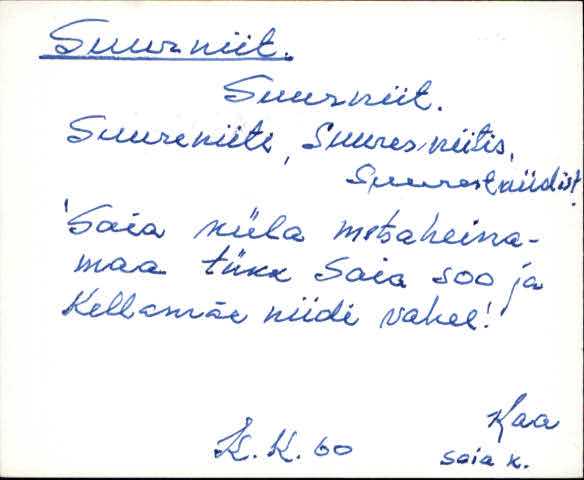 Suurniit.
Suurniit.
Suureniiti, Suuresniitis,
Suurestniidist.
'Saia küla metsaheina-
maa tükk Saia soo ja
Kellamäe niidi vahel!'
Kaa
K. K. 60
Saia k.